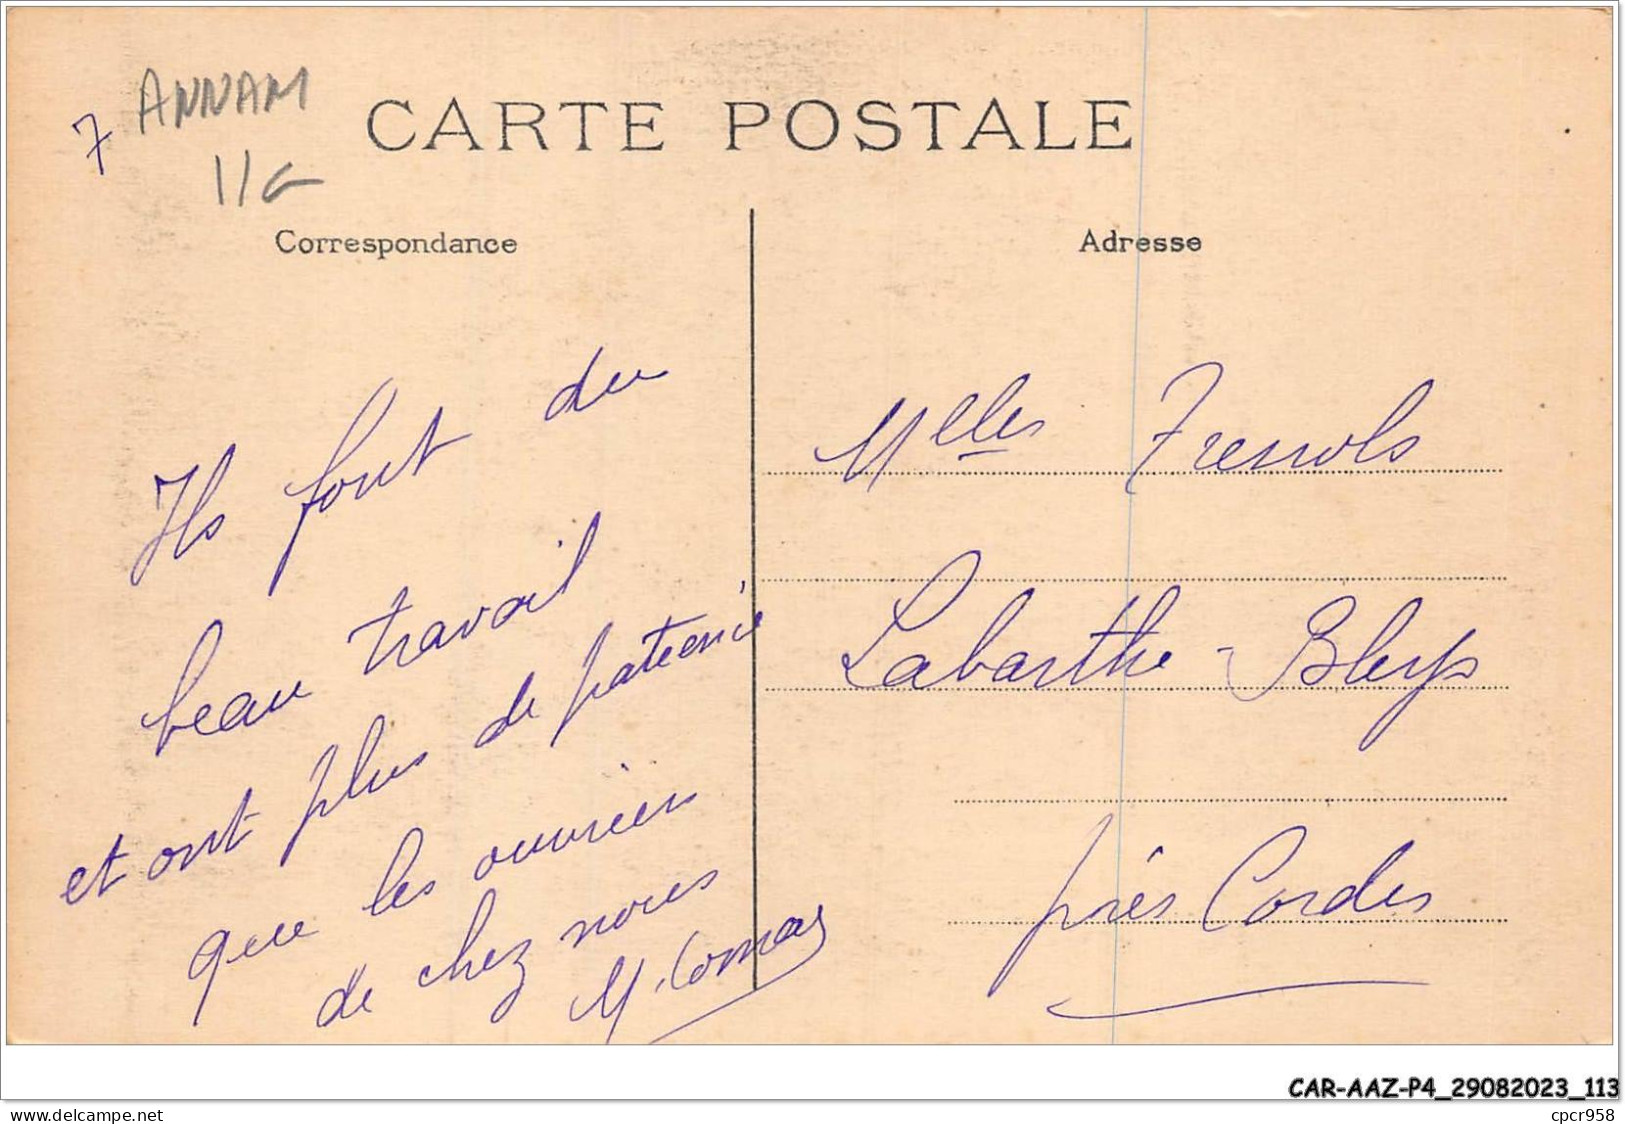 7 ANNAM
11G
CARTE POSTALE
Correspondance
Adresse
Ils font du
beau travail
et ont plus de patience
que les ouvriers
de chez nous
M. Comas
Mlles
Labarthe-Bleys
près Cordes
CAR-AAZ-P4_29082023_113
www.delcampe.net
cpcr958